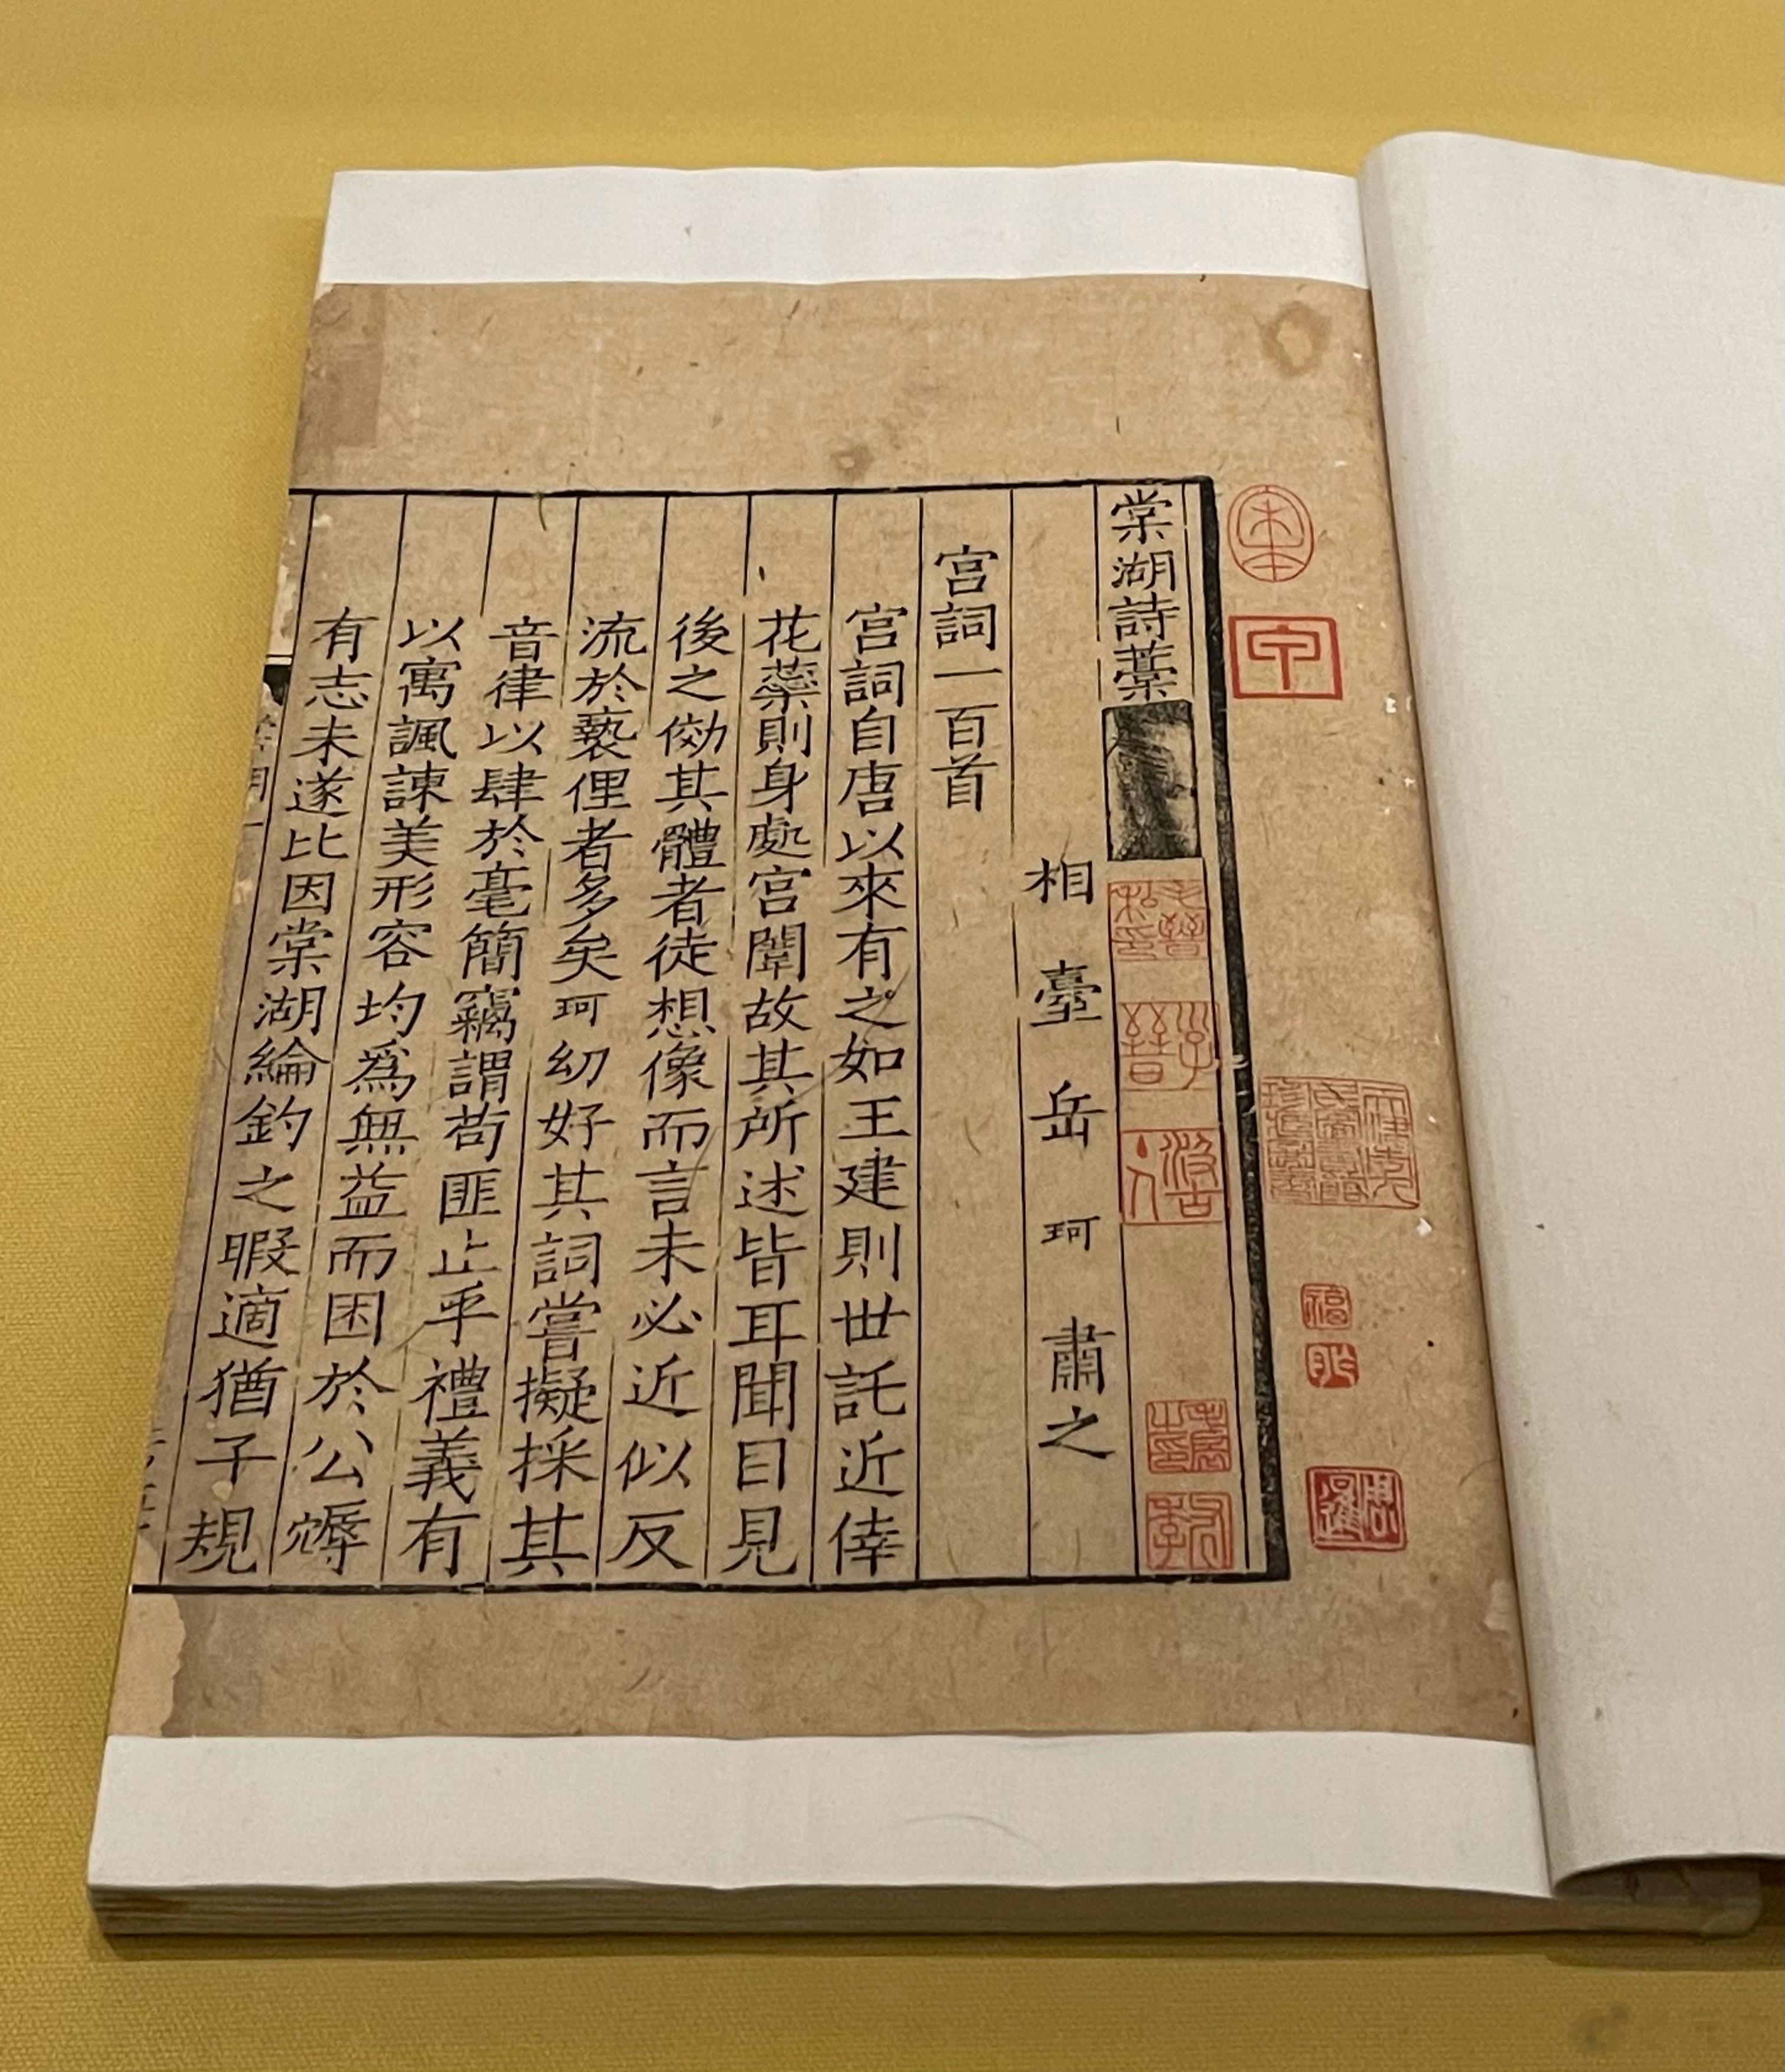 棠湖詩藁
相臺岳珂肅之
宫詞一百首
宫詞自唐以來有之如王建則丗託近倖
花蘂則身處宫闈故其所述皆耳聞目見
後之効其體者徒想像而言未必近似反
流於䙝俚者多矣珂幼好其詞嘗擬採其
音律以肆於毫簡竊謂苟匪止乎禮義有
以寓諷諫美形容均爲無益而困於公
有志未遂比因棠湖綸釣之暇適猶子規
宋本
甲
毛晉私印
子晉
汲古主人